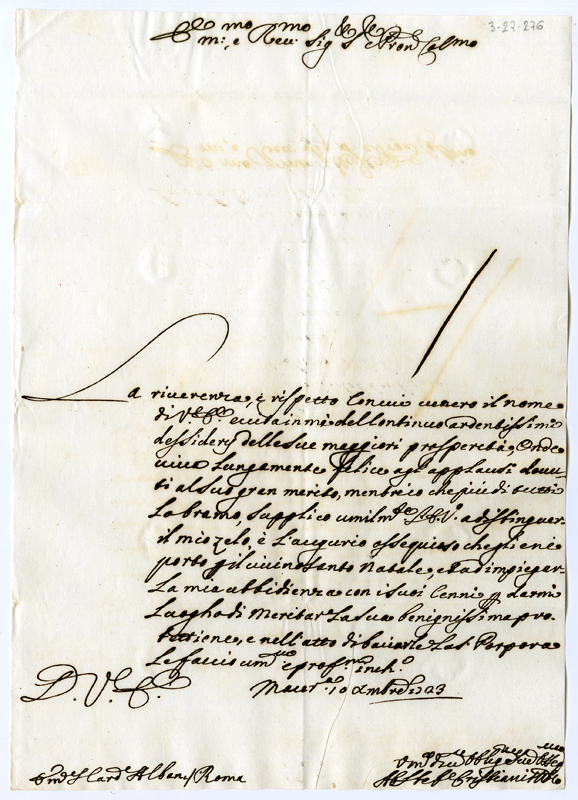 3-27-276
Em:mo e Reu:mo Sig:r Sig:r e Pron Col:mo
La riuerenza, è rispetto con cui uenero il nome
di V.E. eccita in mè del continuo ardentissimi
dessiderij delle sue maggiori prosperità; Onde
uiua lungamente felice agl'applausi douu-
ti al suo gran merito, mentre io che più di tutti
lo bramo, supplico umilm.te l'E.V. a distinguer
il mio zelo, è l'augurio ossequioso che gli enè
porto p il uicino Santo Natale, et ad impiegar
la mia ubbidienza con i suoi Cenni p darmi
luogho di Meritar la sua benignissima pro-
tettione, e nell'atto di baciarle la S. Porpora
le faccio um.ma e prof.ma inch.o
D. V. E.
Macer.a 10 Xmbre 1723
Em.o S. Card. Albani / Roma
Vm.o Deu.o Obblig.mo Seru.
Cristiani